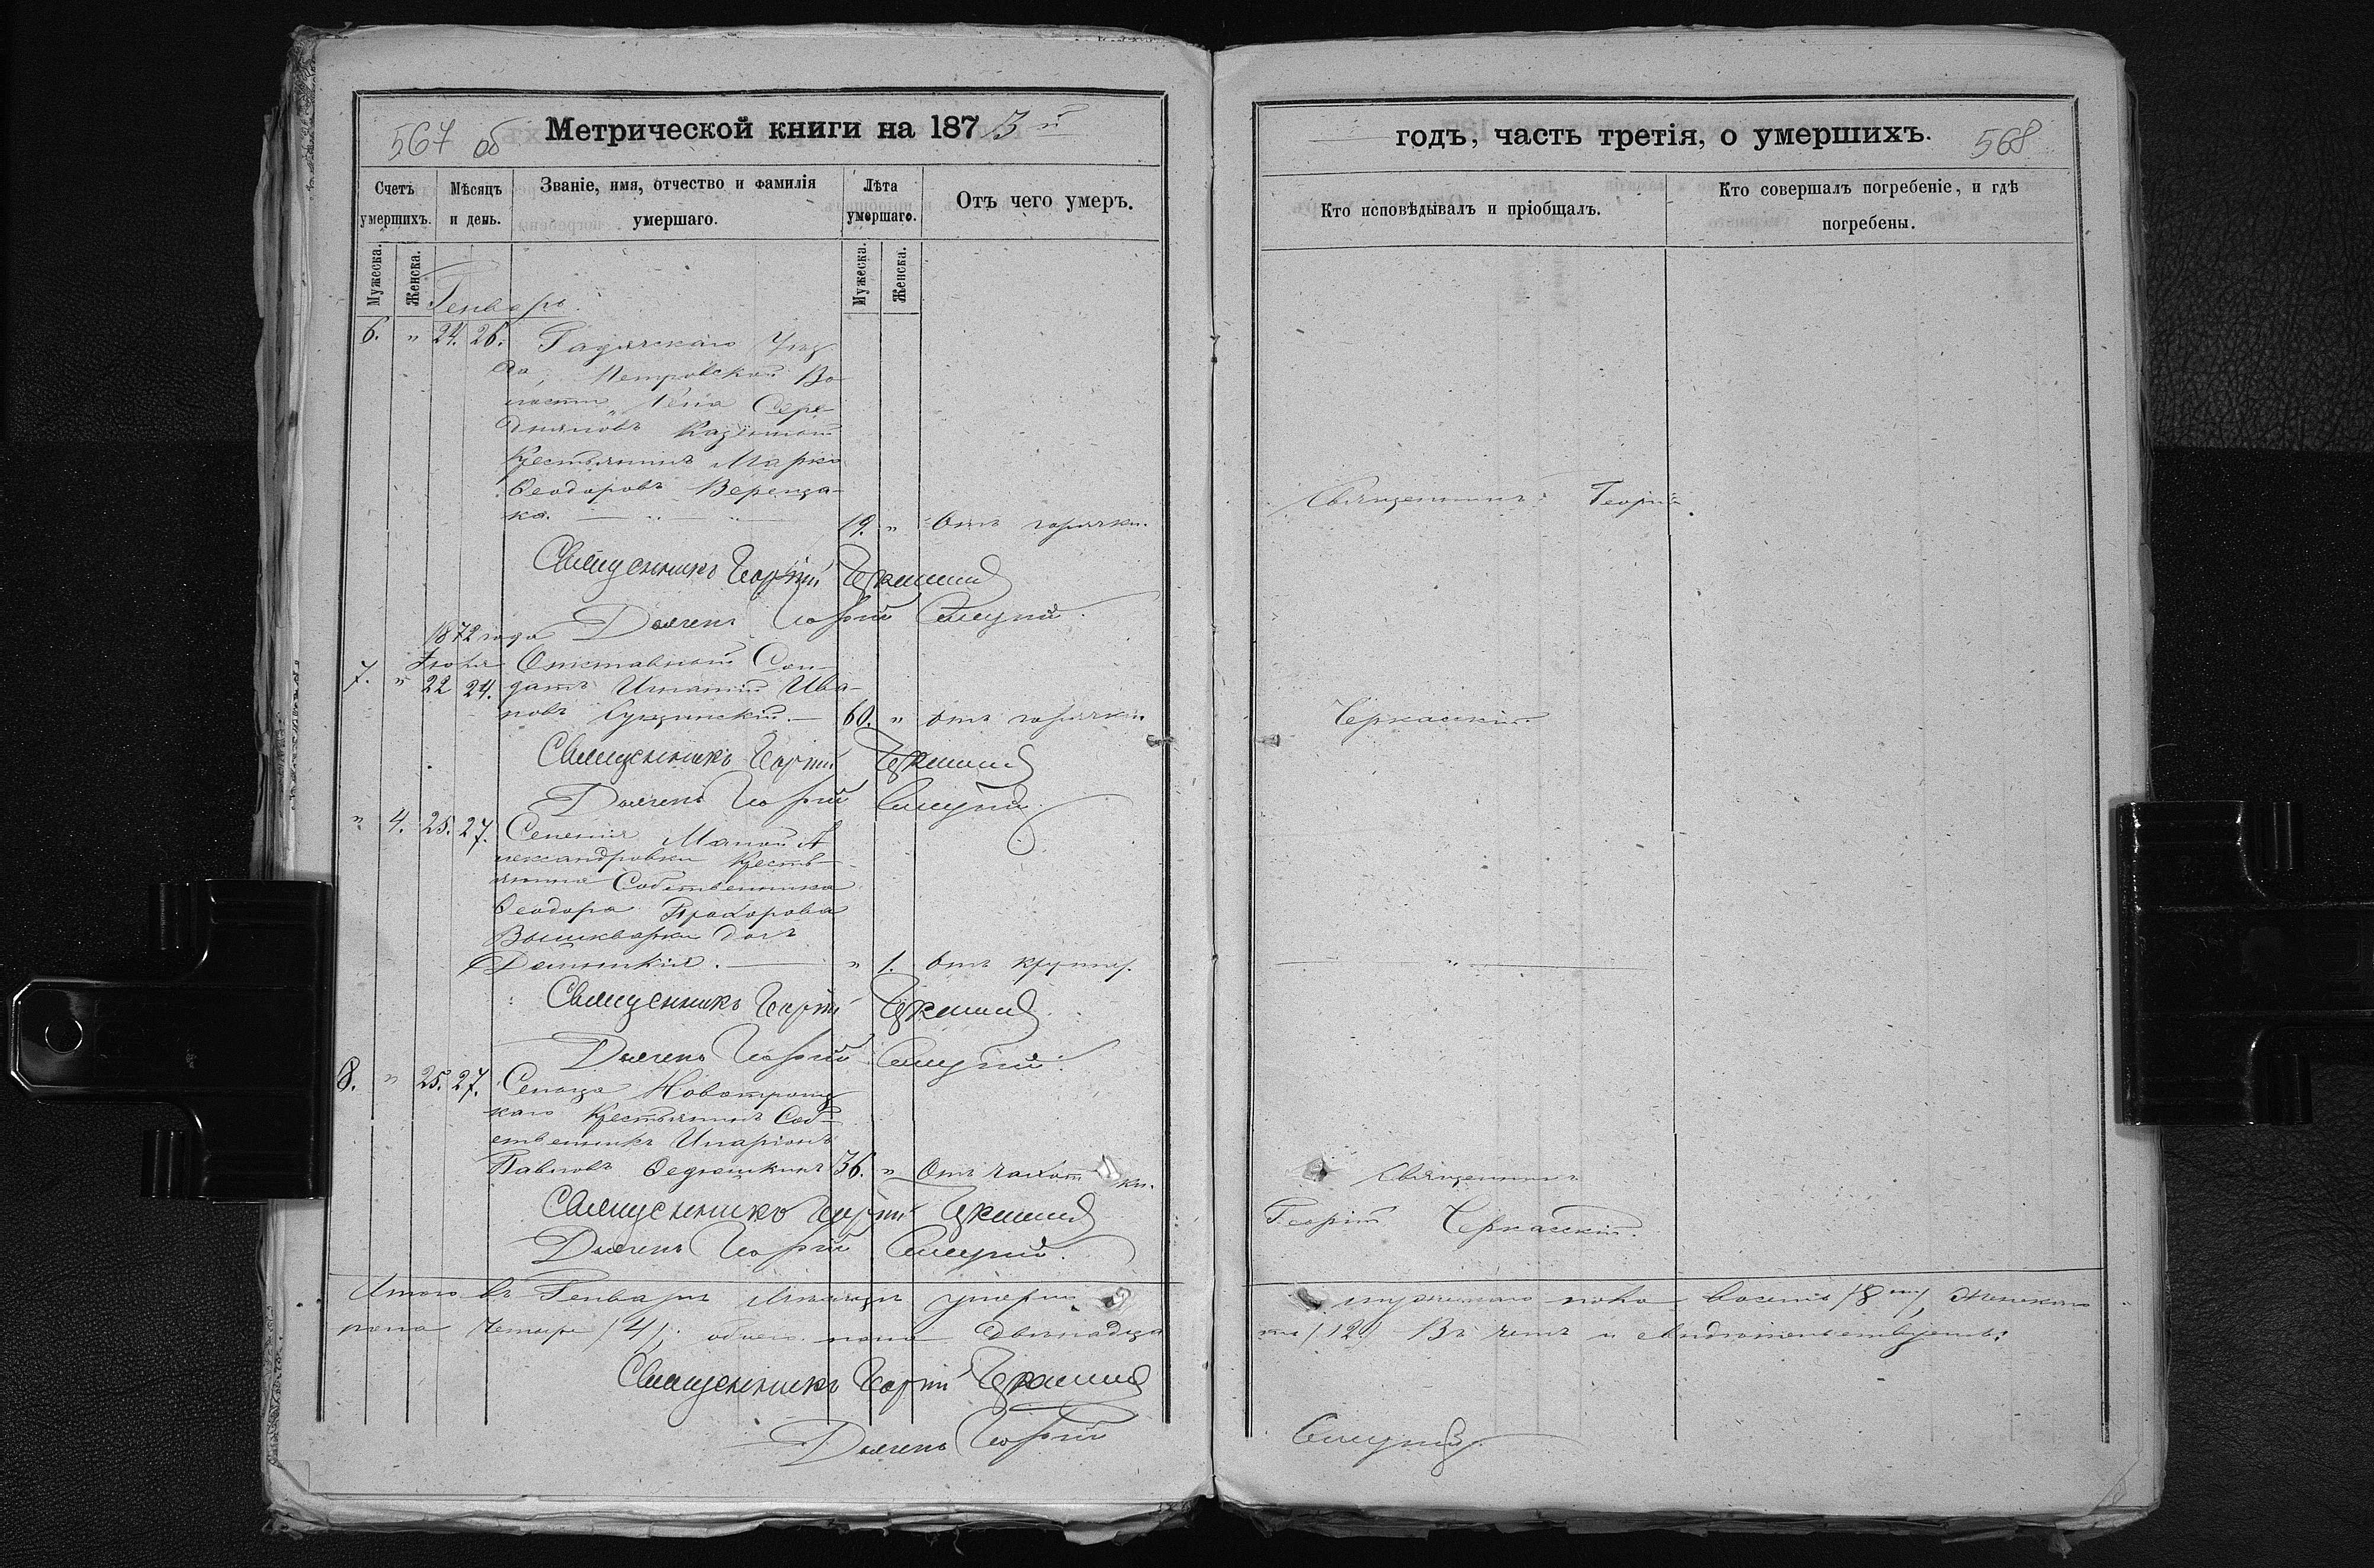 567 об
Метрической книги на 1873й
Счетъ умершихъ.
Мѣсяцъ и день.
Званіе, имя, отчество и фамилія умершаго.
Лѣта умершаго.
Отъ чего умеръ.
Мужеска.
Женска.
Мужеска.
Женска.
Генварь
6. " 24. 26. Гадячскаго Уѣз
да, Петровской Во
лости, Села Сере
дняковъ Казенный
Крестьянинъ Марко
Ѳеодоровъ Веренза-
ка. 19. " Отъ горячки.
Священникъ Георгій Черкасскій
Дьячекъ Георгій
1872 года
Отставный Сол-
7. " 22 24. датъ Игнатій Ива-
новъ 60. " Отъ горячки
Священникъ Георгій Черкасскій
Дьячекъ Георгій
" 4. 25. 27. Селенія Малой А
лександровки Кресть-
янина Собственника
Ѳеодора Прохорова
Вышкварки дочь
" 1. Отъ крупы.
Священникъ Георгій Черкасскій
Дьячекъ Георгій
8. " 25. 27. Селенія Новотроиц
каго Крестьянинъ Соб-
ственникъ Иларіонъ
Павловъ Ѳедюшкинъ 36. " Отъ чахотки.
Священникъ Георгій Черкасскій
Дьячекъ Георгій
Итого въ Генварѣ мѣсяцѣ умерш
пола Четыре /4/, обоего пола Двѣнадца
Священникъ Георгій Черкасскій
Дьячекъ Георгій
годъ, часть третія, о умершихъ.
568
Кто исповѣдывалъ и пріобщалъ.
Кто совершалъ погребеніе, и гдѣ погребены.
Священникъ Георгій
Черкасскій
"
Священникъ
Георгій Черкасскій.
мужескаго пола восемь /8мь/, Женскаго
ть /12/ Въ чемъ и свидѣтельствуемъ: